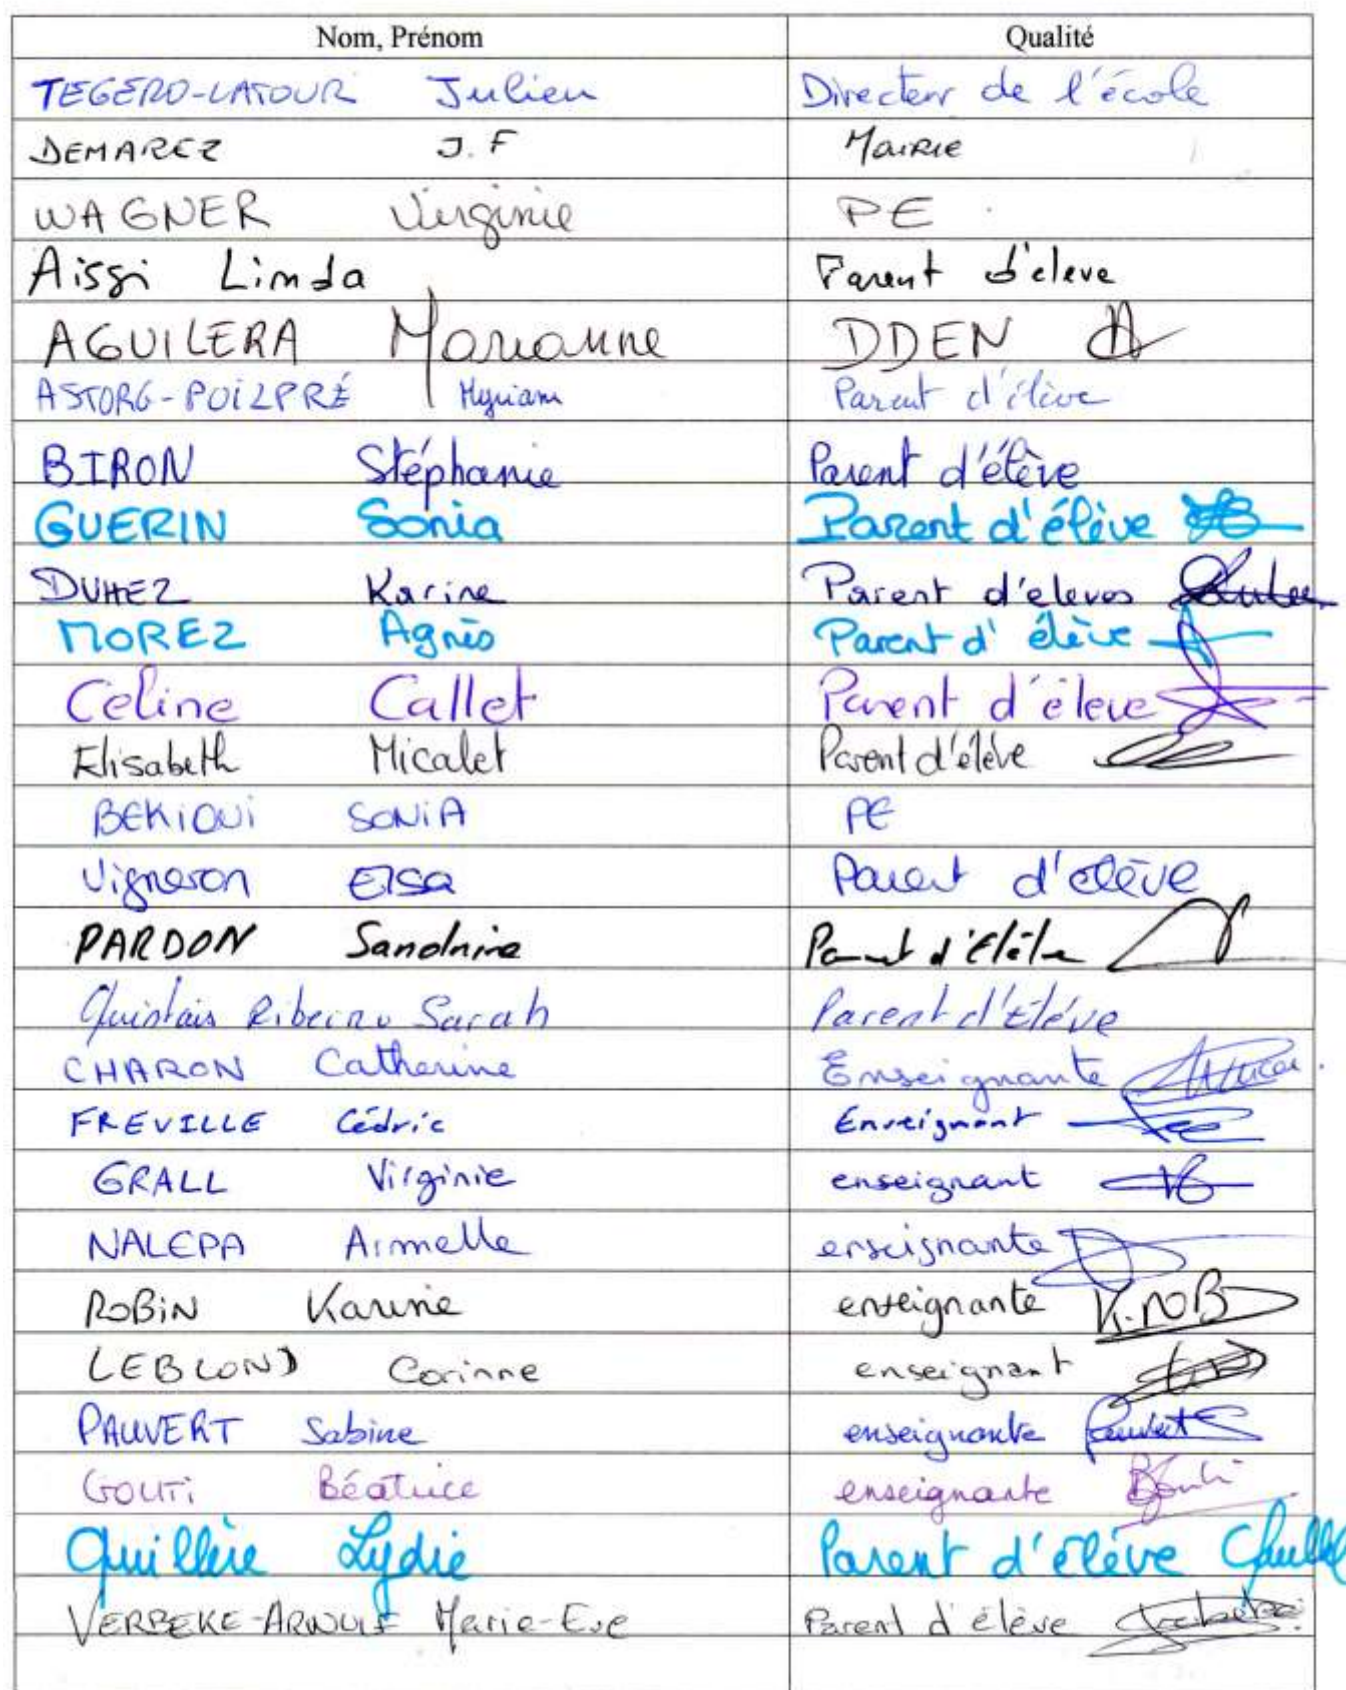 Nom, Prénom Qualité
TEGERO-LATOUR Julien Directeur de l'école
DEMAREZ J.F Mairie
WAGNER Virginie PE
Aissi Linda Parent d'eleve
AGUILERA Marianne DDEN
ASTORG-POILPRÉ Myriam Parent d'élève
BIRON Stéphanie Parent d'élève
GUERIN Sonia Parent d'élève
DUHEZ Karine Parent d'eleves
MOREZ Agnès Parent d'élève
Celine Callet Parent d'éleve
Elisabeth Micalet Parent d'élève
BEKIOUI SONIA PE
Vigneron Elsa Parent d'elève
PARDON Sandrine Parent d'Elève
Sarah Parent d'Eléve
CHARON Catherine Enseignante
FREVILLE Cédric Enseignant
GRALL Virginie enseignant
NALEPA Armelle enseignante
ROBIN Karine enseignante K.ROB
LEBLOND Corinne enseignant
PAUVERT Sabine enseignante
GOUTI Béatrice enseignante
Quillère Lydie Parent d'élève
VERBEKE-ARNOULF Marie-Eve Parent d'élève